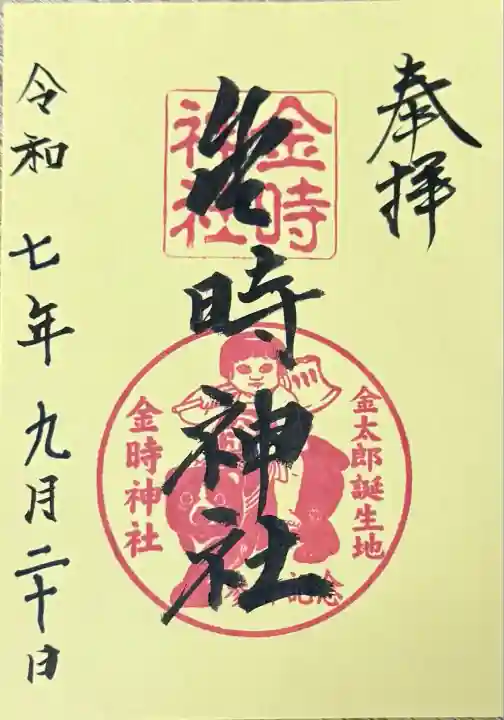 奉拝
金時神社
金時
神社
金太郎誕生地
金時神社
参拝記念
令和 七年 九月 二十日